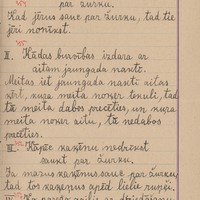 par žurku.
Kad jērus sauc par žurku, tad tie
jēri nonīkst.
II. Kādas burvības izdara ar
aitām jaungada naktī.
Meitas iet jaungada naktī aitas
ķert, kura meita noķer tekuli, tad
tā meita dabos precēties, un kura
meita noķer aitu, tā nedabos
precēties.
III. Kāpēc kaķēnu nedrīkst
saukt par žurku.
Ja mazus kaķēnus sauc par žurku,
tad tos kaķēnus apēd lielie runči.